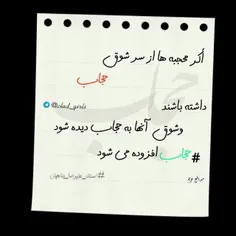 اگر محجبه ها از سر شوق
حجاب
داشته باشند
@chad_girls
وشوق آنها به حجاب دیده شود
#حجاب افزوده می شود
#استاد_علیرضا_پناهیان